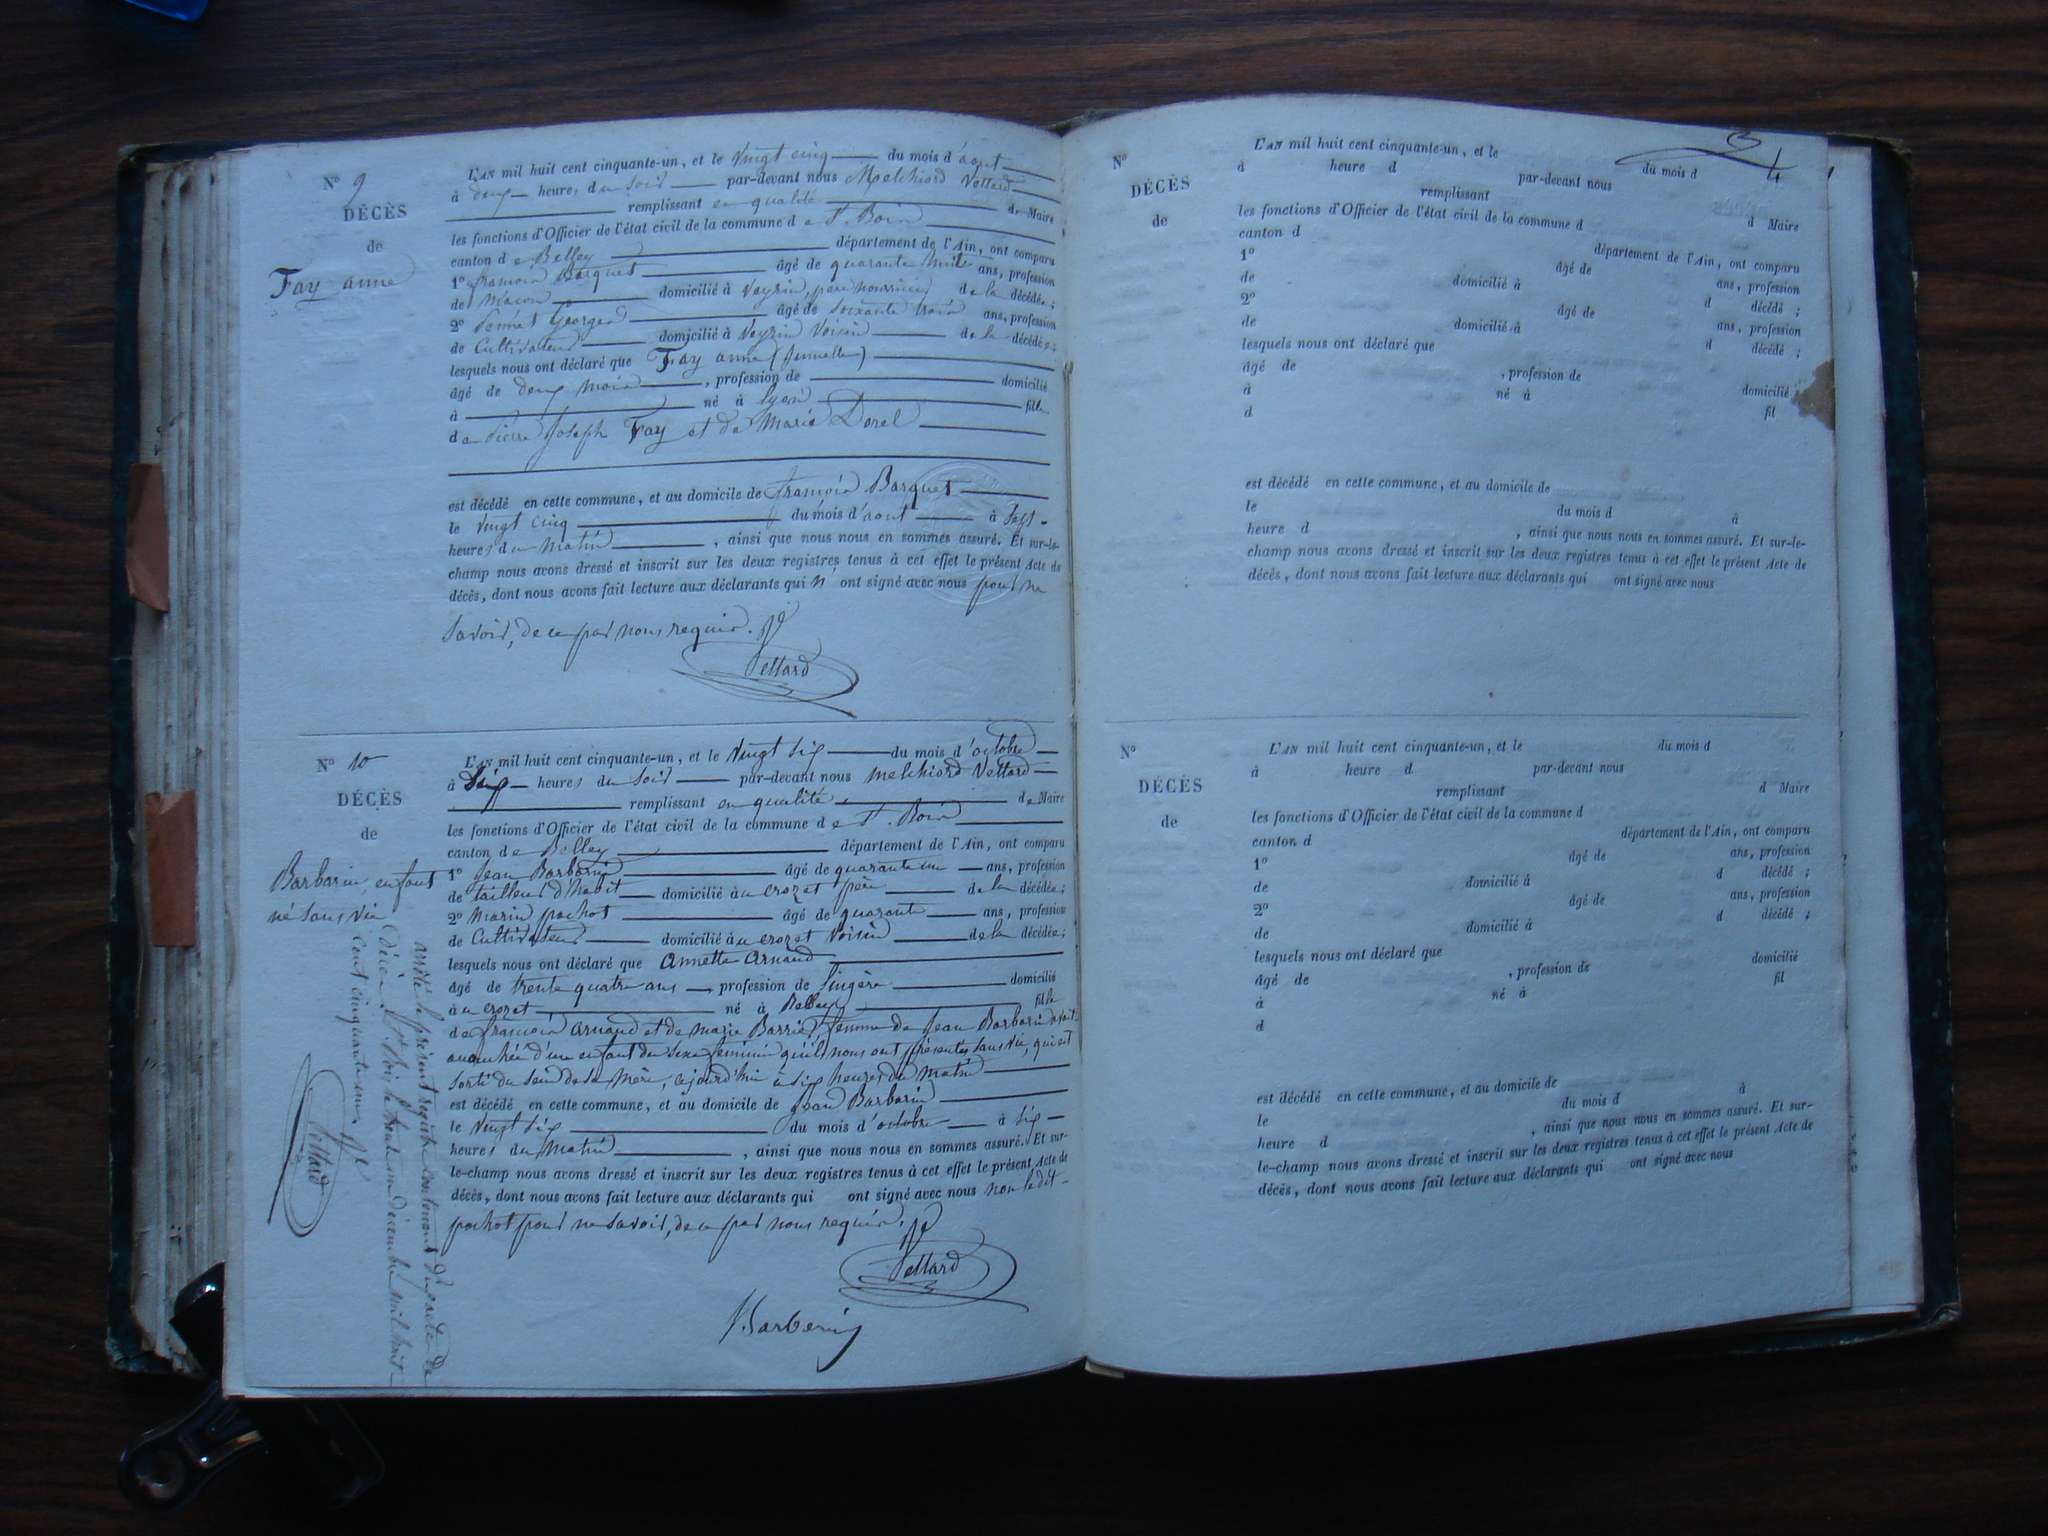 N° 9
DÉCÈS
de
Fay anne
L'AN mil huit cent cinquante-un, et le vingt cinq du mois d'aout
à deux heures du soir par-devant nous Melchior Vettard
remplissant en qualité de Maire
les fonctions d'Officier de l'état civil de la commune de St. Bois
canton de Belley département de l'Ain, ont comparu
1° françois Barquet âgé de quarante huit ans, profession
de Macon domicilié à Veyrin, père nourricier de la décédée;
2° Georges âgé de soixante trois ans, profession
de Cultivateur domicilié à Veyrin Voisin de la décédée;
lesquels nous ont déclaré que Fay anne (annette)
âgé de deux mois, profession de domicilié
à né à lyon fille
de Pierre Joseph Fay et de Marie Dorel
est décédé en cette commune, et au domicile de françois Barquet
le vingt cinq du mois d'aout à sept
heures du matin, ainsi que nous nous en sommes assuré. Et sur-le-
champ nous avons dressé et inscrit sur les deux registres tenus à cet effet le présent Acte de
décès, dont nous avons fait lecture aux déclarants qui n'ont signé avec nous pour ne
savoir, de ce par nous requis.
Vettard
N° 10
DÉCÈS
de
Barbarin, enfant
né sans vie
L'AN mil huit cent cinquante-un, et le vingt six du mois d'octobre
à six heures du soir par-devant nous melchior Vettard
remplissant en qualité de Maire
les fonctions d'Officier de l'état civil de la commune de St. Bois
canton de Belley département de l'Ain, ont comparu
1° Jean Barbarin âgé de quarante un ans, profession
de tailleur d'habit domicilié au crozet père de la décédée;
2° Marin pochot âgé de quarante ans, profession
de Cultivateur domicilié au crozet Voisin de la décédée;
lesquels nous ont déclaré que annette arnaud
âgé de trente quatre ans, profession de lingère domicilié
au crozet né à Belley fille
de françois arnaud et de marie Barrier, femme de Jean Barbarin avait
accouchée d'une enfant du sexe féminin qu'ils nous ont présentés sans vie, qui est
sorti du sein de sa mère, cejourd'hui à six heures du matin
est décédé en cette commune, et au domicile de Jean Barbarin
le vingt six du mois d'octobre à six
heures du matin, ainsi que nous nous en sommes assuré. Et sur-
le-champ nous avons dressé et inscrit sur les deux registres tenus à cet effet le présent Acte de
décès, dont nous avons fait lecture aux déclarants qui ont signé avec nous non le dit
pochot pour ne savoir, de ce par nous requis.
Vettard
Barbarin
arrêté le présent registre contenant dix actes de
décès à St. Bois le trente un décembre mil huit
cent cinquante un.
Vettard
4
N°
DÉCÈS
de
L'AN mil huit cent cinquante-un, et le du mois d
à heure d par-devant nous
remplissant d Maire
les fonctions d'Officier de l'état civil de la commune d
canton d département de l'Ain, ont comparu
1° âgé de ans, profession
de domicilié à d décédé ;
2° âgé de ans, profession
de domicilié à d décédé ;
lesquels nous ont déclaré que
âgé de , profession de domicilié
à né à fil
d
est décédé en cette commune, et au domicile de
le du mois d à
heure d , ainsi que nous nous en sommes assuré. Et sur-le-
champ nous avons dressé et inscrit sur les deux registres tenus à cet effet le présent Acte de
décès, dont nous avons fait lecture aux déclarants qui ont signé avec nous
N°
DÉCÈS
de
L'AN mil huit cent cinquante-un, et le du mois d
à heure d par-devant nous
remplissant d Maire
les fonctions d'Officier de l'état civil de la commune d
canton d département de l'Ain, ont comparu
1° âgé de ans, profession
de domicilié à d décédé ;
2° âgé de ans, profession
de domicilié à d décédé ;
lesquels nous ont déclaré que
âgé de , profession de domicilié
à né à fil
d
est décédé en cette commune, et au domicile de
le du mois d à
heure d , ainsi que nous nous en sommes assuré. Et sur-
le-champ nous avons dressé et inscrit sur les deux registres tenus à cet effet le présent Acte de
décès, dont nous avons fait lecture aux déclarants qui ont signé avec nous